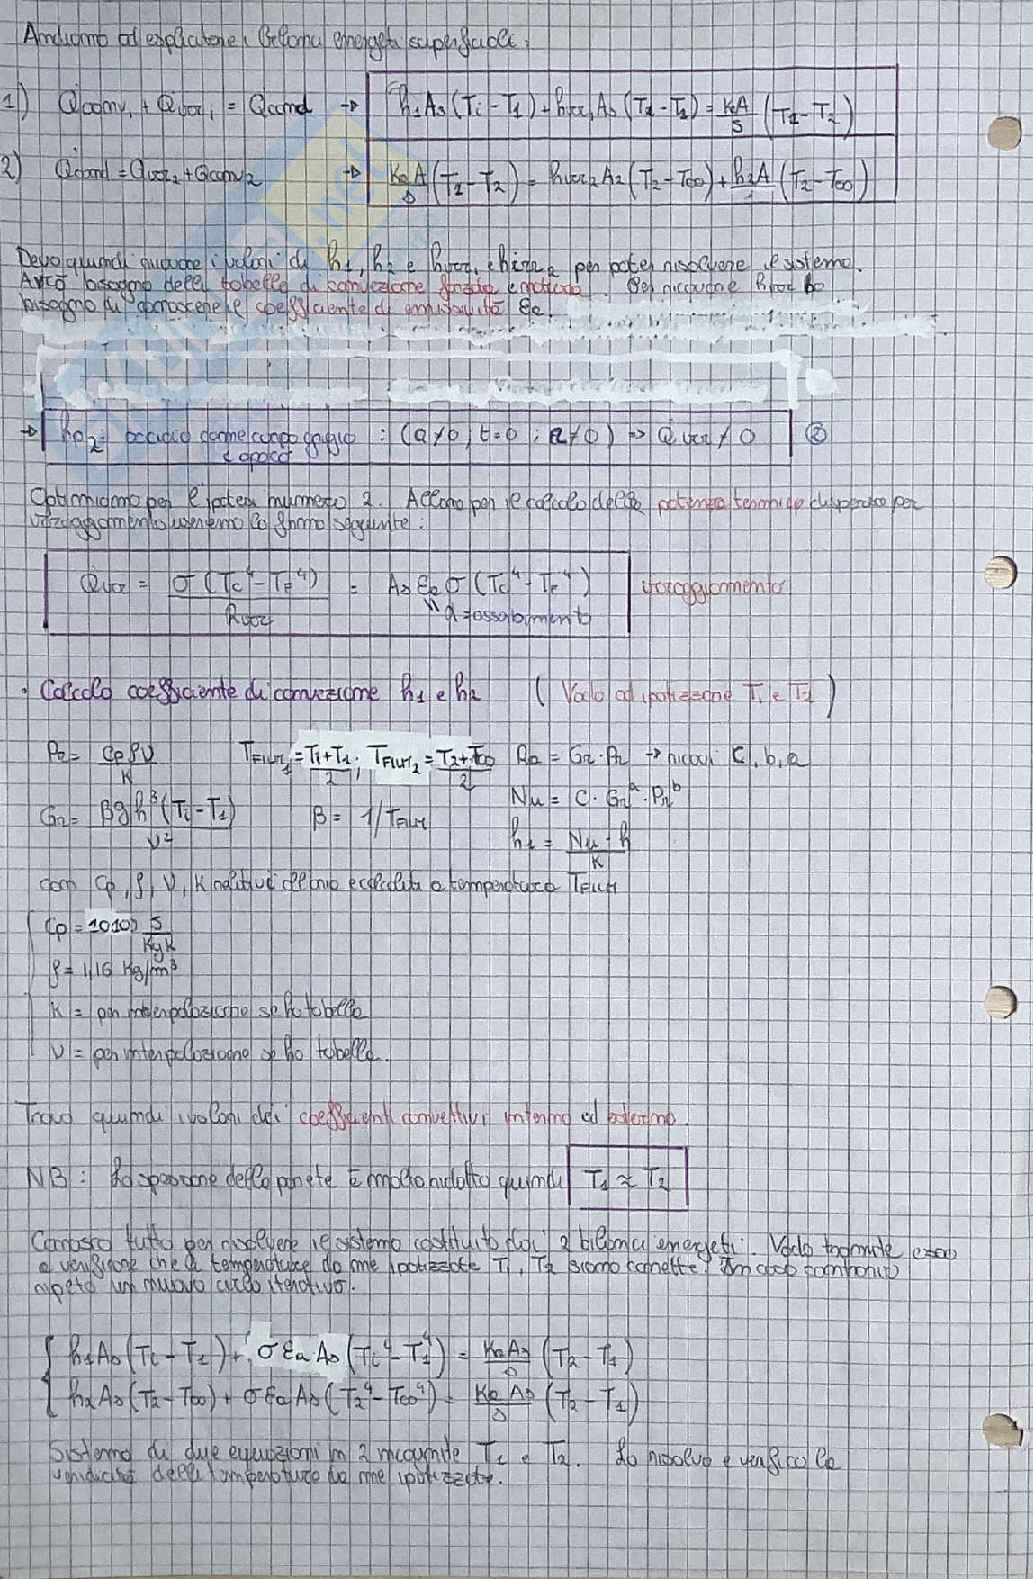 Andiamo ad esplicare i bilanci energetici superficiali:
1) Q̇conv₁ + Q̇irr₁ = Q̇cond → h₁ As (Ti - T₁) + hirr₁ As (Ti - T₁) = KA/s (T₁ - T₂)
2) Q̇cond = Q̇irr₂ + Q̇conv₂ → KaA/s (T₁ - T₂) = hirr₂ A₂ (T₂ - T∞) + h₂A (T₂ - T∞)
Devo quindi trovare i valori di h₁, h₂ e hirr₁, hirr₂ per poter risolvere il sistema.
Avrò bisogno della tabella di convezione forzata e naturale. Per ricavare hirr ho
bisogno di conoscere il coefficiente di emissività εa.
→ hp₂: come corpo grigio : (a≠0, t=0, r≠0) ⇒ Q̇irr ≠ 0 ②
e opaco
Optiamo per l'ipotesi numero 2. Allora per il calcolo della potenza termica dispersa per
irraggiamento useremo la forma seguente:
Q̇irr = σ(Tc⁴ - TF⁴)/Rirr = As εa σ (Tc⁴ - TF⁴) irraggiamento
" α = assorbimento
• Calcolo coefficiente di convezione h₁ e h₂ (Vado ad ipotizzare T₁ e T₂)
Pr = Cp ρ ν / K TFILM₁ = Ti+T₁/2 ; TFILM₂ = T₂+T∞/2 Ra = Gr · Pr → ricavi C, b, a
Gr = βgh³(Ti - T₁)/ν² β = 1/TFILM Nu = C · Grᵃ · Prᵇ
h₁ = Nu · h / K
con Cp, ρ, ν, K relative all'aria e calcolate a temperatura TFILM
Cp = 1010 J/KgK
ρ = 1,16 Kg/m³
K = per interpolazione se ho tabella
ν = per interpolazione se ho tabella.
Trovo quindi i valori dei coefficienti convettivi interno ed esterno.
NB: Lo spessore della parete è molto ridotto quindi T₁ ≈ T₂
Conosco tutto per risolvere il sistema costituito dai 2 bilanci energetici. Vado tramite esso
a verificare che le temperature da me ipotizzate T₁, T₂ siano corrette. In caso contrario
ripeto un nuovo ciclo iterativo.
h₁As(Ti - T₁) + σ εa As (Ti⁴ - T₁⁴) = KaAs/s (T₂ - T₁)
h₂As(T₂ - T∞) + σ εa As (T₂⁴ - T∞⁴) = Ka As/s (T₂ - T₁)
Sistema di due equazioni in 2 incognite T₁ e T₂. Lo risolvo e verifico la
veridicità delle temperature da me ipotizzate.